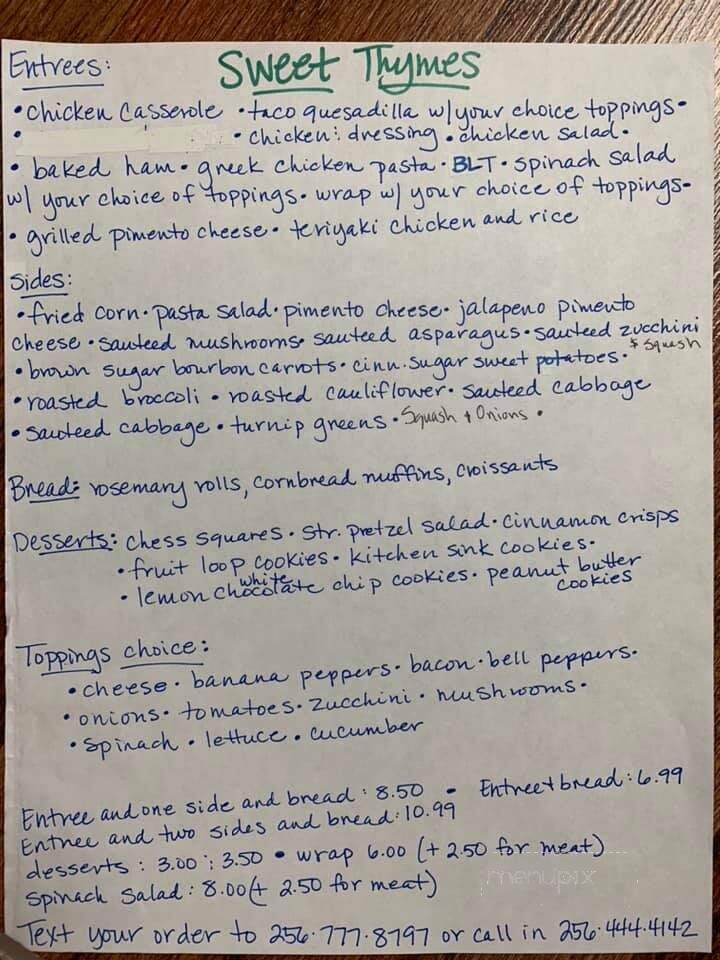 Sweet Thymes
Entrees:
• chicken casserole • taco quesadilla w/ your choice toppings •
• • chicken & dressing • chicken salad •
• baked ham • greek chicken pasta • BLT • spinach salad
w/ your choice of toppings • wrap w/ your choice of toppings •
• grilled pimento cheese • teriyaki chicken and rice
Sides:
• fried corn • pasta salad • pimento cheese • jalapeno pimento
cheese • sauteed mushrooms • sauteed asparagus • sauteed zucchini
& squash
• brown sugar bourbon carrots • cinn. sugar sweet potatoes •
• roasted broccoli • roasted cauliflower • sauteed cabbage
• sauteed cabbage • turnip greens • Squash + Onions •
Bread: rosemary rolls, cornbread muffins, croissants
Desserts: chess squares • str. pretzel salad • cinnamon crisps
• fruit loop cookies • kitchen sink cookies •
• lemon white chocolate chip cookies • peanut butter
cookies
Toppings choice:
• cheese • banana peppers • bacon • bell peppers •
• onions • tomatoes • zucchini • mushrooms •
• spinach • lettuce • cucumber
Entree and one side and bread: 8.50 - Entree + bread: 6.99
Entree and two sides and bread: 10.99
desserts: 3.00 ; 3.50 • wrap 6.00 (+ 2.50 for meat)
Spinach Salad: 8.00 (+ 2.50 for meat)
menupix
Text your order to 256.777.8797 or call in 256.444.4142